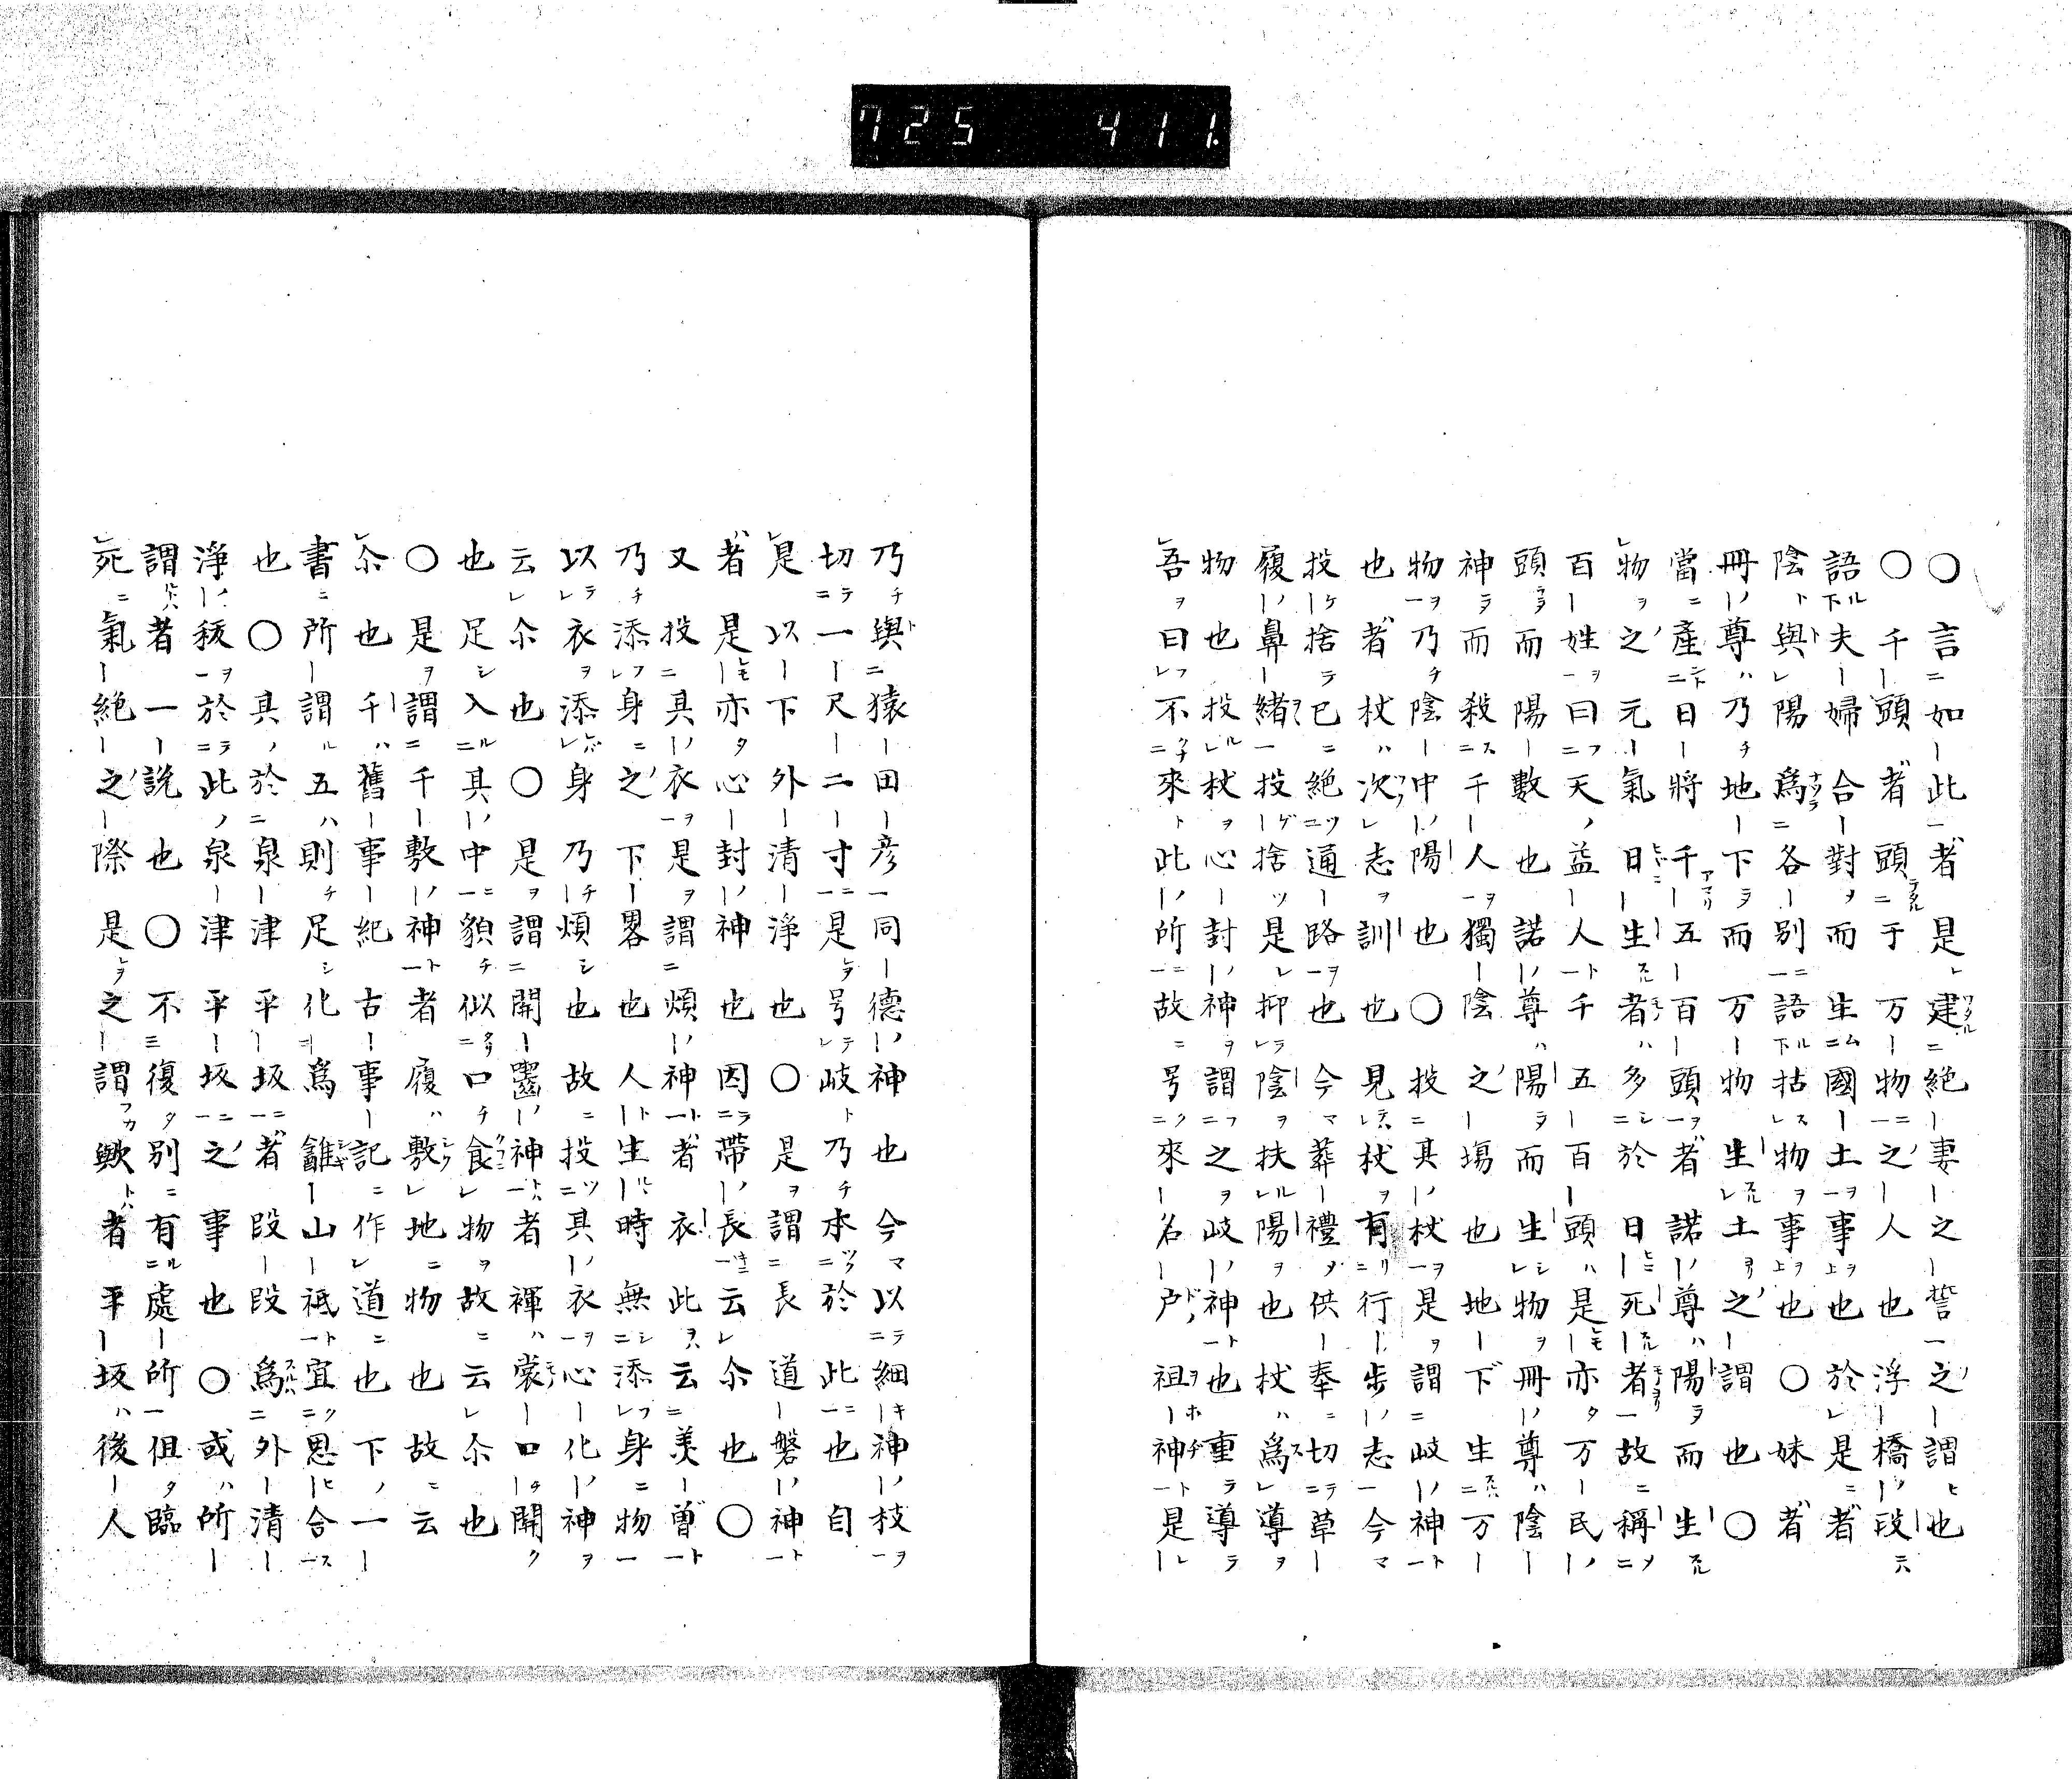 725 411.
〇言如此者是建絶妻之誓之謂也
〇千頭者頭于万物之人也浮橋段
語夫婦合對而生國土事也於是者
陰與陽爲各別語拈物事也〇妹者
冊尊乃地下而万物生土之謂也〇
當產日將千五百頭者諾尊陽而生
物之元氣日生者多於日死者故稱
百姓曰天益人千五百頭是亦万民
頭而陽數也諾尊陽而生物冊尊陰
神而殺千人獨陰之塲也地下生万
物乃陰中陽也〇投其杖是謂岐神
也者杖次志訓也見杖有行步志今
投捨已絶通路也今葬禮供奉切草
履鼻緒投捨是抑陰扶陽也杖爲導
物也投杖心封神謂之岐神也重導
吾曰不來此所故号來名戸祖神是
乃與猿田彦同德神也今以細神枝
切一尺二寸是号岐乃本於此也自
是以下外清淨也〇是謂長道磐神
者是亦心封神也因帶長云尒也〇
又投其衣是謂煩神者衣此云羑曽
乃添身之下畧也人生時無添身物
以衣添身乃煩也故投其衣心化神
云尒也〇是謂開囓神者褌裳口開
也足入其中貌似口食物故云尒也
〇是謂千敷神者履敷地物也故云
尒也千舊事紀古事記作道也下一
書所謂五則足化爲䨄山祇宜思合
也〇其於泉津平坂者段段爲外清
淨秡於此泉津平坂之事也〇或所
謂者一說也〇不復別有處所但臨
死氣絶之際是之謂歟者平坂後人